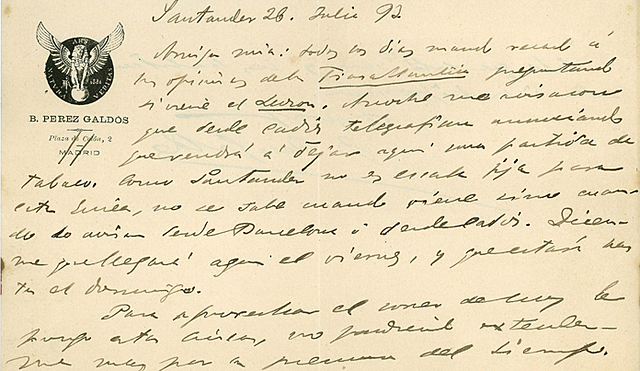 Santander 26. Julio 92
ARS
NATURA VERITAS
B. PEREZ GALDÓS
Plaza de Colón, 2
MADRID
Amiga mia: todos los dias mando recado á
las oficinas de la Trasatlantica preguntando
si viene el . Anoche me avisaron
que desde Cadiz telegrafian anunciando
que vendrá á dejar aqui una partida de
tabaco. Como Santander no es escala fija para
esta linea, no se sabe cuando viene sino cuan-
do lo avisan desde Barcelona ó desde Cadiz. Dicen-
me que llegará aqui el viernes, y que estará has
ta el domingo.
Para aprovechar el correo de hoy le
pongo estas lineas, no pudiendo extender-
me mas por la premura del tiempo.